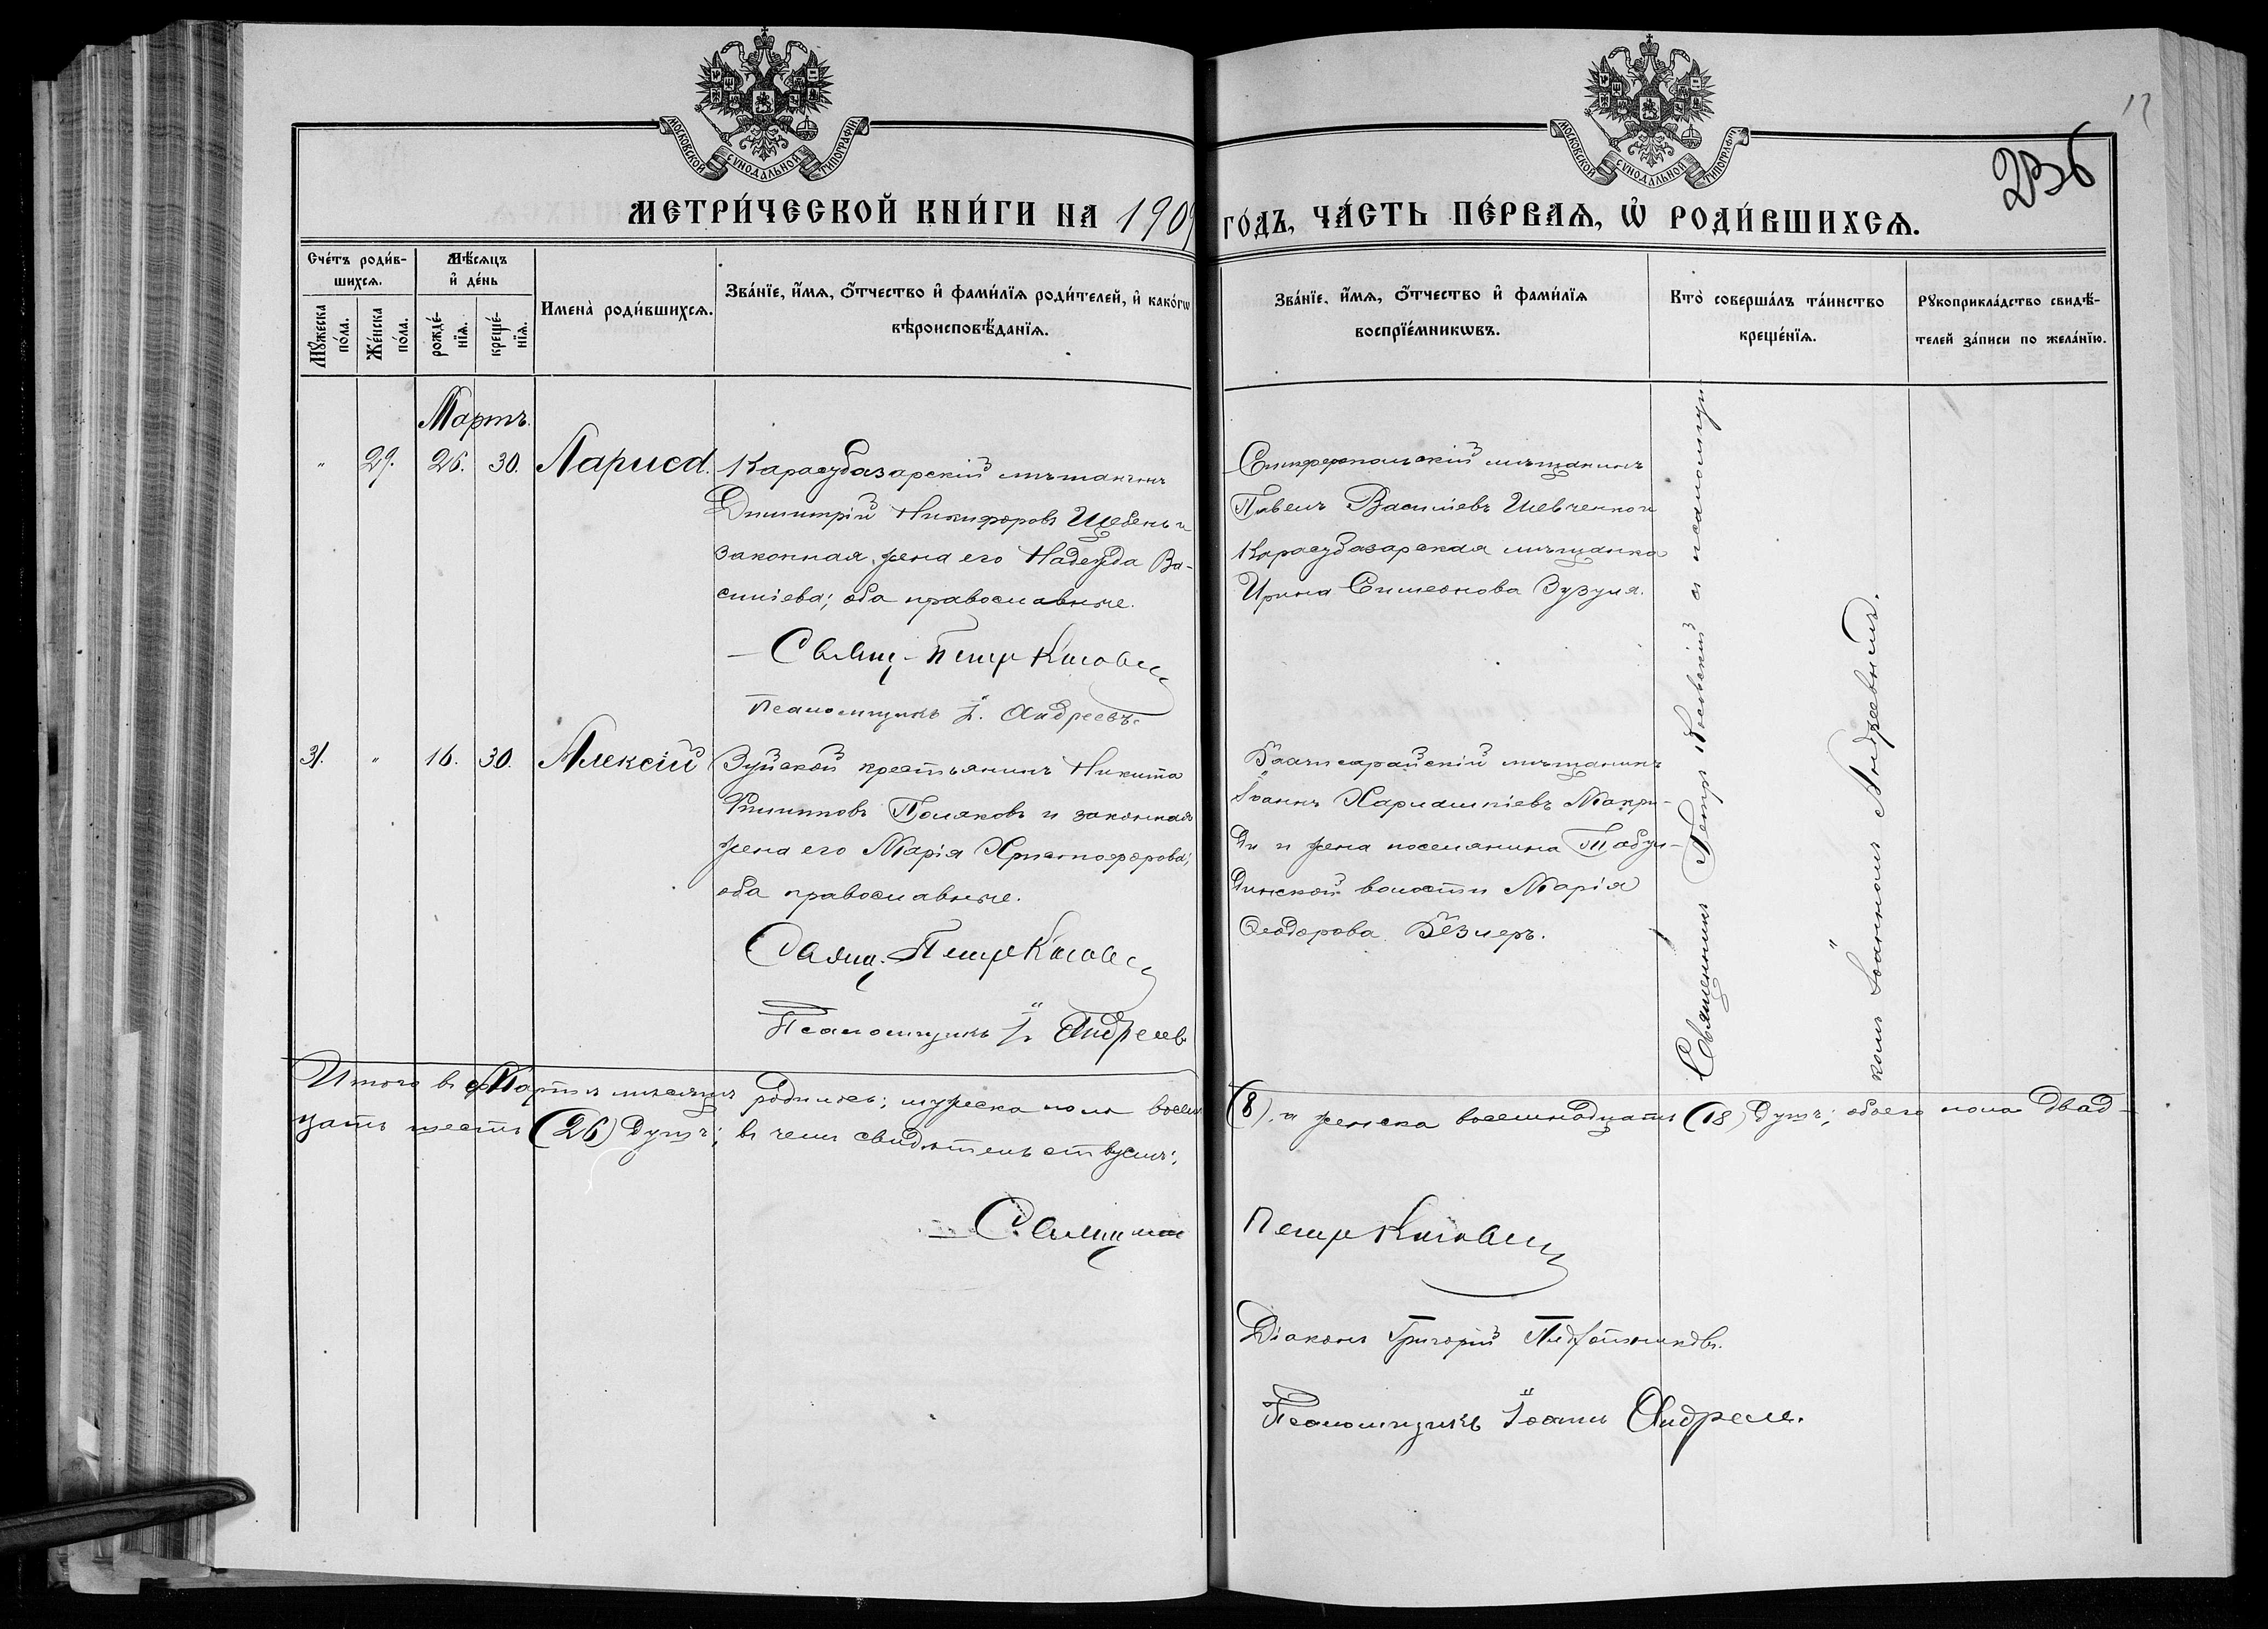 МОСКОВСКОЙ СѴНОДАЛЬНОЙ ТИПОГРАФІИ
МОСКОВСКОЙ СѴНОДАЛЬНОЙ ТИПОГРАФІИ
12
236
МЕТРИ́ЧЕСКОЙ КНИ́ГИ НА 1909 ГО́ДЪ, ЧА́СТЬ ПЕ́РВАѦ, Ѡ҆ РОДИ́ВШИХСѦ.
Сче́тъ роди́в-
шихсѧ.
Мꙋ́жеска по́ла.
Же́нска по́ла.
Мѣ́сѧцъ
и҆ де́нь
рожде́-
нїѧ.
креще́-
нїѧ.
Имена̀ роди́вшихсѧ.
Зва́нїе, и҆́мѧ, ѻ҆́тчество и҆ фами́лїѧ роди́телей, и҆ како́гѡ
вѣроисповѣ́данїѧ.
Зва́нїе, и҆́мѧ, ѻ҆́тчество и҆ фами́лїѧ
воспрїе́мникѡвъ.
Кто̀ соверша́лъ та́инство
креще́нїѧ.
Рꙋкоприкла́дство свидѣ́-
телей за́писи по жела́нїю.
Мартъ.
" 29. 26. 30. Лариса.
Карасубазарскій мѣщанинъ
Димитрій Никифоровъ Щебень и
законная жена его Надежда Ва-
сильева; оба православные.
Свящ. Петръ
Псаломщикъ І. Андреевъ.
Симферопольскій мѣщанинъ
Павелъ Васильевъ Шевченко и
Карасубазарская мѣщанка
Ирина Симеонова Зузуля.
31. " 16. 30. Алексій
Зуйской крестьянинъ Никита
Поляковъ и законная
жена его Марія Христофорова;
оба православные.
Свящ. Петръ
Псаломщикъ І. Андреевъ
Бахчисарайскій мѣщанинъ
Іоаннъ Харлампіевъ Макри-
ди и жена поселянина Табул-
динской волости Марія
Ѳеодорова Бёзлеръ.
Священникъ Петръ съ псаломщи-
комъ Іоанномъ Андреевымъ.
Итого въ Мартѣ мѣсяцѣ родилось: мужеска пола восемь (8), и женска восемнадцать (18) душъ; обоего пола двад-
цать шесть (26) душъ; въ чемъ свидѣтельствуемъ:
Священникъ Петръ
Діаконъ Григорій
Псаломщикъ Іоаннъ Андреевъ.